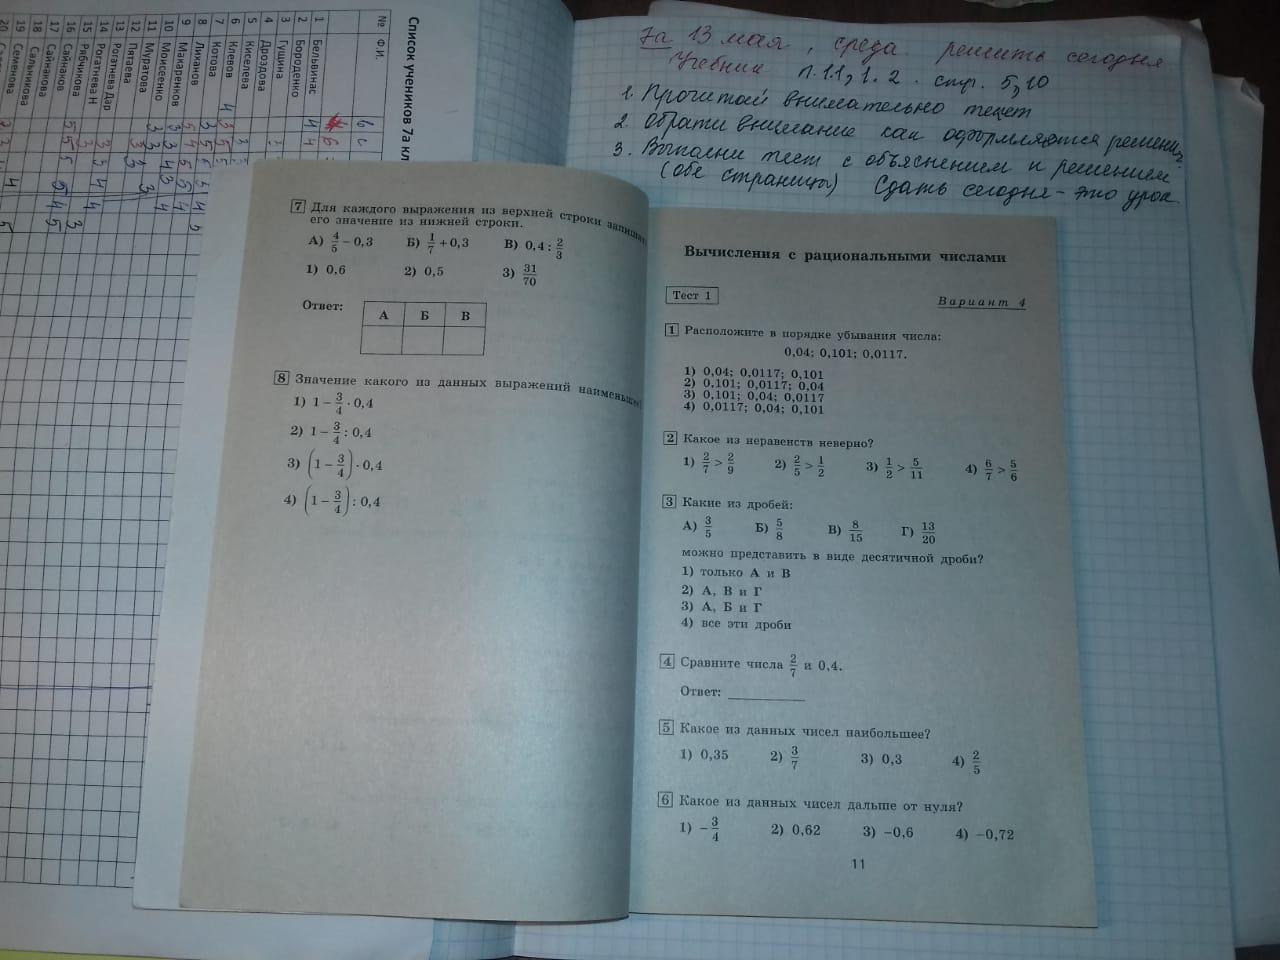 7а 13 мая, среда решить сегодня
Учебник п. 1.1, 1.2. стр. 5,10
1. Прочитай внимательно текст
2. Обрати внимание как оформляется
3. Выполни тест с объяснением и решением
(обе страницы) Сдать сегодня - это урок
Список учеников 7а кл
№ Ф.И.
1 Бельвинас
2 Бороденко
3 Гущина
4 Дроздова
5 Киселева
6 Клевов
7 Котова
8 Лиханов
9 Макаренков
10 Моисеенко
11 Муратова
12 Пятаева
13 Рогатнева Дар
14 Рогатнева Н
15 Рябчикова
16 Сайнаков
17 Сайнакова
18 Сальникова
19 Семенова
20
7 Для каждого выражения из верхней строки запишите
его значение из нижней строки.
А) 4/5 − 0,3 Б) 1/7 + 0,3 В) 0,4 : 2/3
1) 0,6 2) 0,5 3) 31/70
Ответ:
А Б В
8 Значение какого из данных выражений наименьшее?
1) 1 − 3/4 · 0,4
2) 1 − 3/4 : 0,4
3) (1 − 3/4) · 0,4
4) (1 − 3/4) : 0,4
Вычисления с рациональными числами
Тест 1 Вариант 4
1 Расположите в порядке убывания числа:
0,04; 0,101; 0,0117.
1) 0,04; 0,0117; 0,101
2) 0,101; 0,0117; 0,04
3) 0,101; 0,04; 0,0117
4) 0,0117; 0,04; 0,101
2 Какое из неравенств неверно?
1) 2/7 > 2/9 2) 2/5 > 1/2 3) 1/2 > 5/11 4) 6/7 > 5/6
3 Какие из дробей:
А) 3/5 Б) 5/8 В) 8/15 Г) 13/20
можно представить в виде десятичной дроби?
1) только А и В
2) А, В и Г
3) А, Б и Г
4) все эти дроби
4 Сравните числа 2/7 и 0,4.
Ответ:
5 Какое из данных чисел наибольшее?
1) 0,35 2) 3/7 3) 0,3 4) 2/5
6 Какое из данных чисел дальше от нуля?
1) −3/4 2) 0,62 3) −0,6 4) −0,72
11